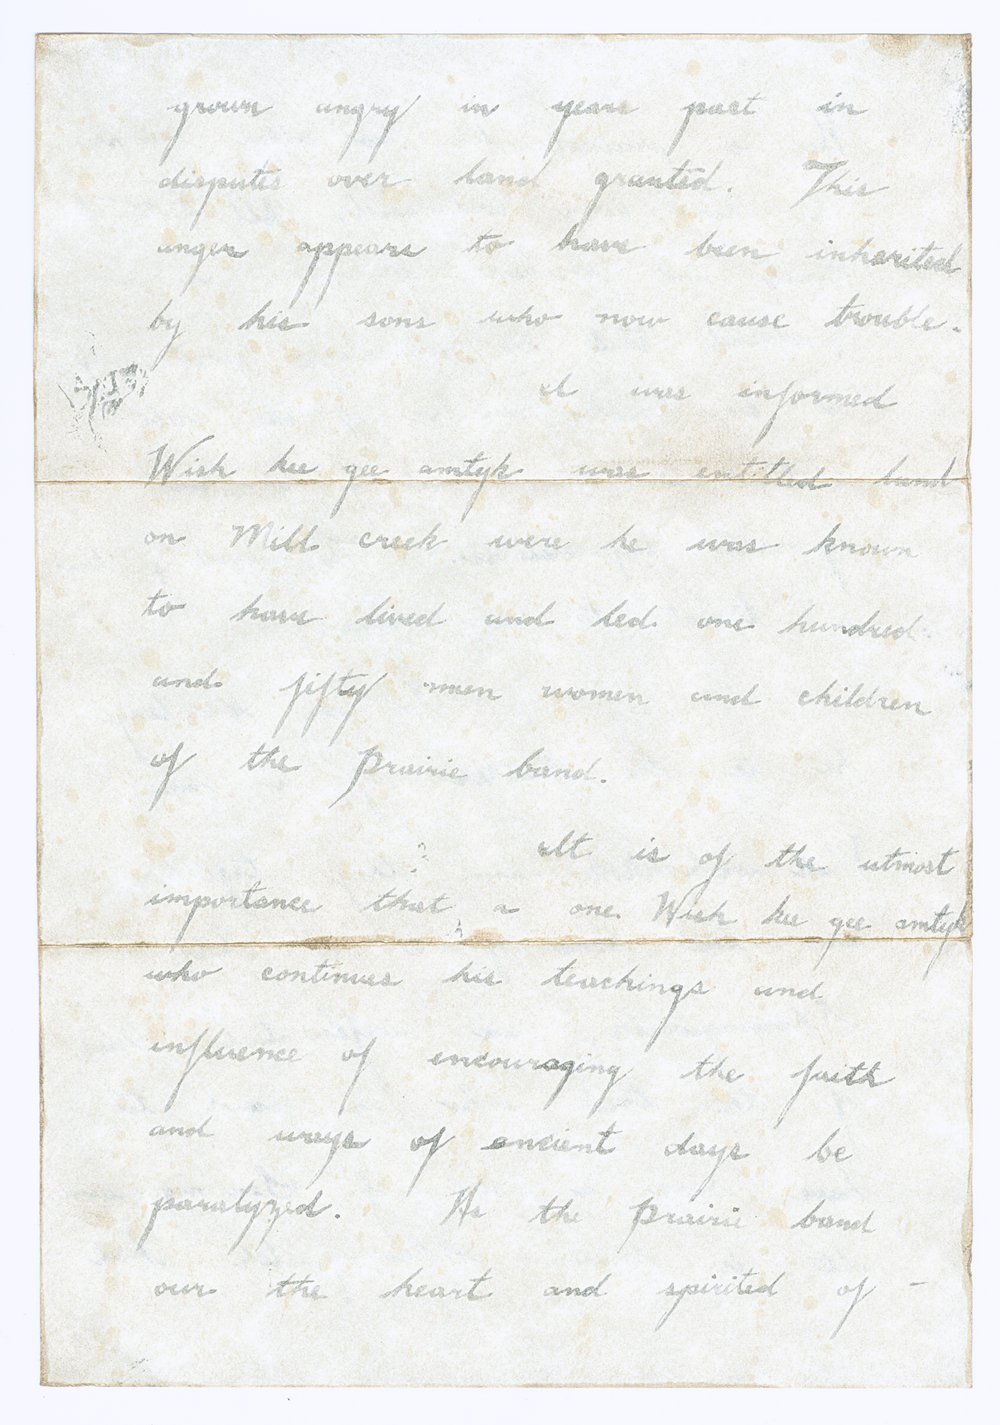 grown angry in years past in
disputes over land granted. This
anger appears to have been inherited
by his sons who now cause trouble.
I was informed
Wish kee gee amtyk was entitled land
on Mill creek were he was known
to have lived and led one hundred
and fifty men women and children
of the Prairie band.
It is of the utmost
importance that a one Wish kee gee amtyk
who continues his teachings and
influence of encouraging the faith
and ways of ancient days be
paralyzed. As the Prairie band
our the heart and spirited of -